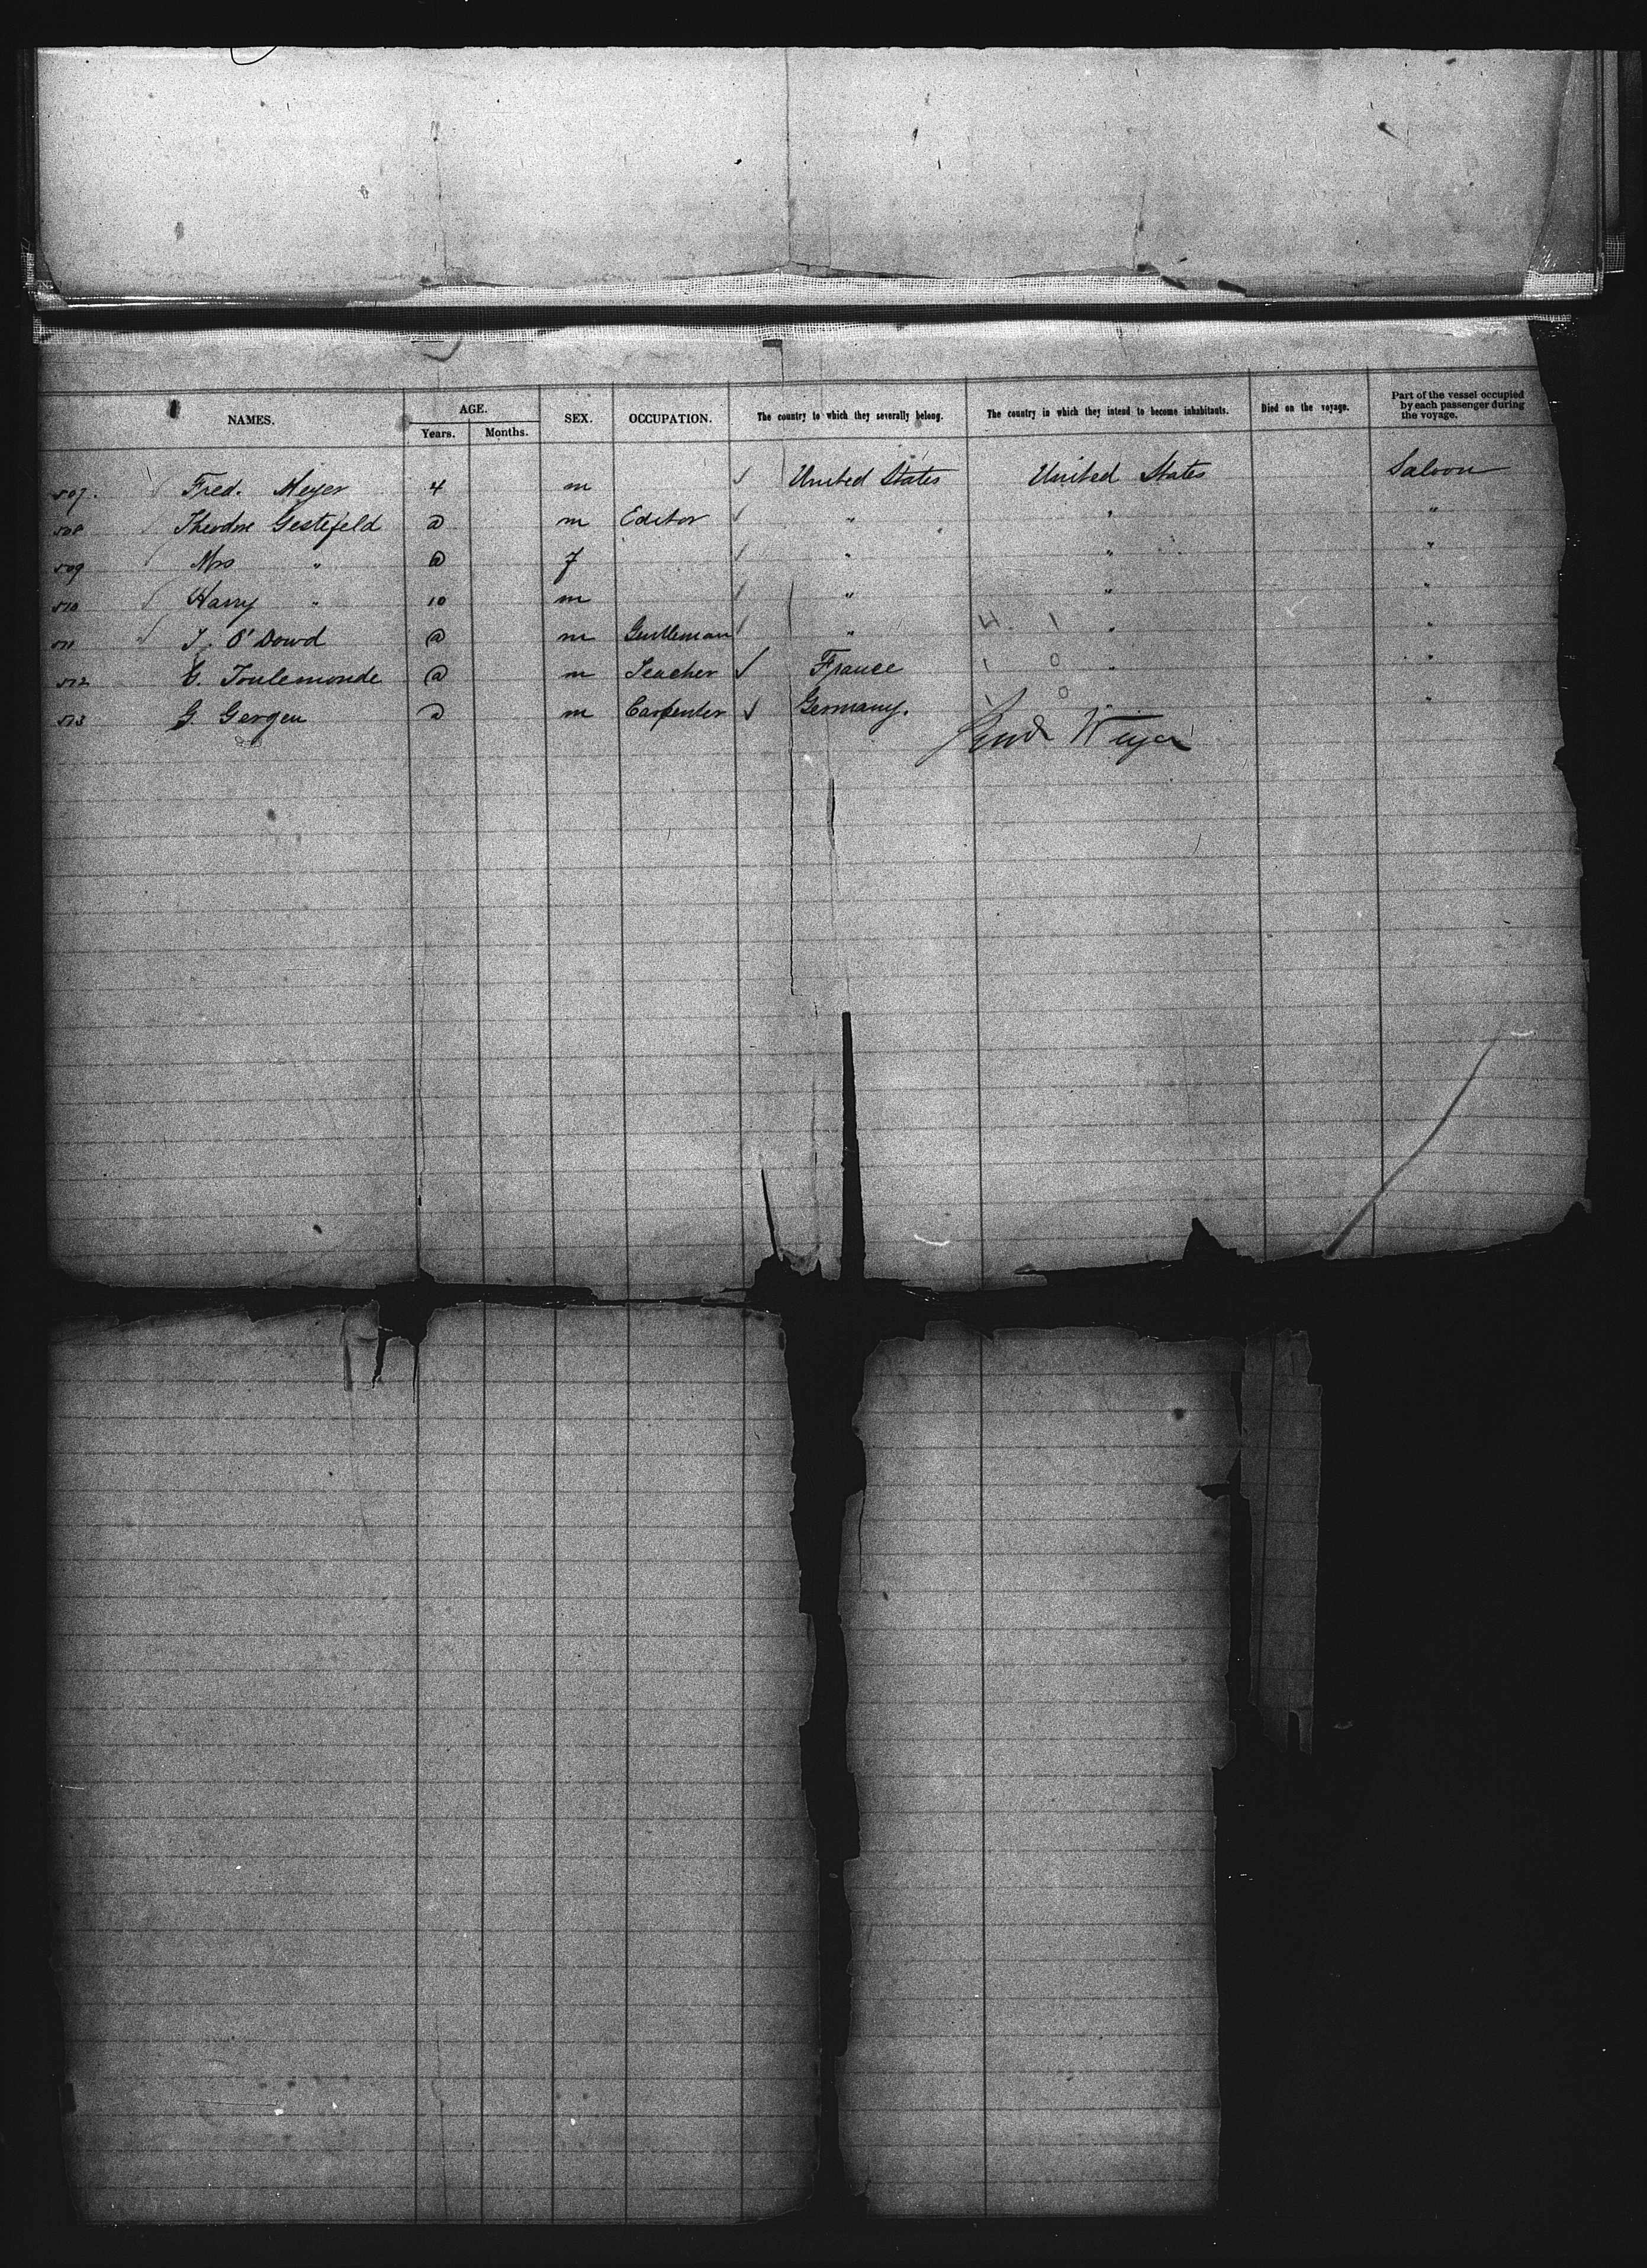 NAMES. AGE. Years. Months. SEX. OCCUPATION. The country to which they severally belong. The country in which they intend to become inhabitants. Died on the voyage. Part of the vessel occupied by each passenger during the voyage.
507. Fred. Meyer 4 m United States United States Saloon
508 Theodore Gestefeld @ m Editor " " "
509 Mrs " @ f " " "
510 Harry " 10 m " " "
511 O'Dowd @ m Gentleman " 4. 1 " "
512 Toulemonde @ m Teacher France 1 0 " "
513 G. Gergen @ m Carpenter Germany. 1 0 " "